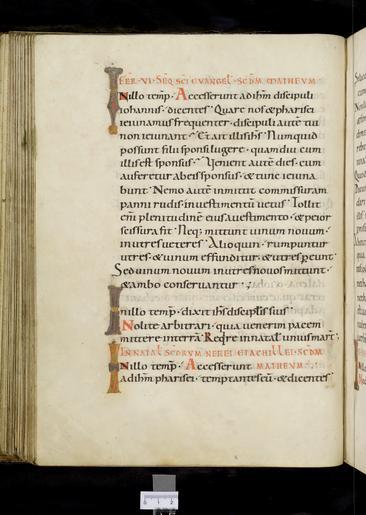 FER· VI· SEQ SCI EVANGEL· SCDM MATHEVM·
INillo temp· Accesserunt adihm discipuli
iohannis· dicentes· Quare nos & pharisei
ieiunamus frequenter· discipuli autem tui
non ieiunant· Et ait illis ihs· Numquid
possunt filii sponsi lugere· quam diu cum
illis est sponsus· Venient autem dies· cum
auferetur ab eis sponsus· & tunc ieiuna
bunt· Nemo autem inmittit commissuram
panni rudis in uestimentum uetus· Tollit
enim plenitudinem eius auestimento· & peior
scissura fit· Neq; mittunt uinum nouum·
in utres ueteres· Alioquin· rumpuntur
utres· & uinum effunditur· & utres pereunt·
Sed uinum nouum in utres nouos mittunt·
& ambo conseruantur·
Inillo temp· dixit ihs discipulis suis·
Nolite arbitrari· quia uenerim pacem
mittere in terra· Reqre in natal unius mart·
IN NATAL SCORVM NEREI ET ACHILLEI· SCDM
INillo temp· Accesserunt MATHEVM·
adihm pharisei· temptantes eum· & dicentes·